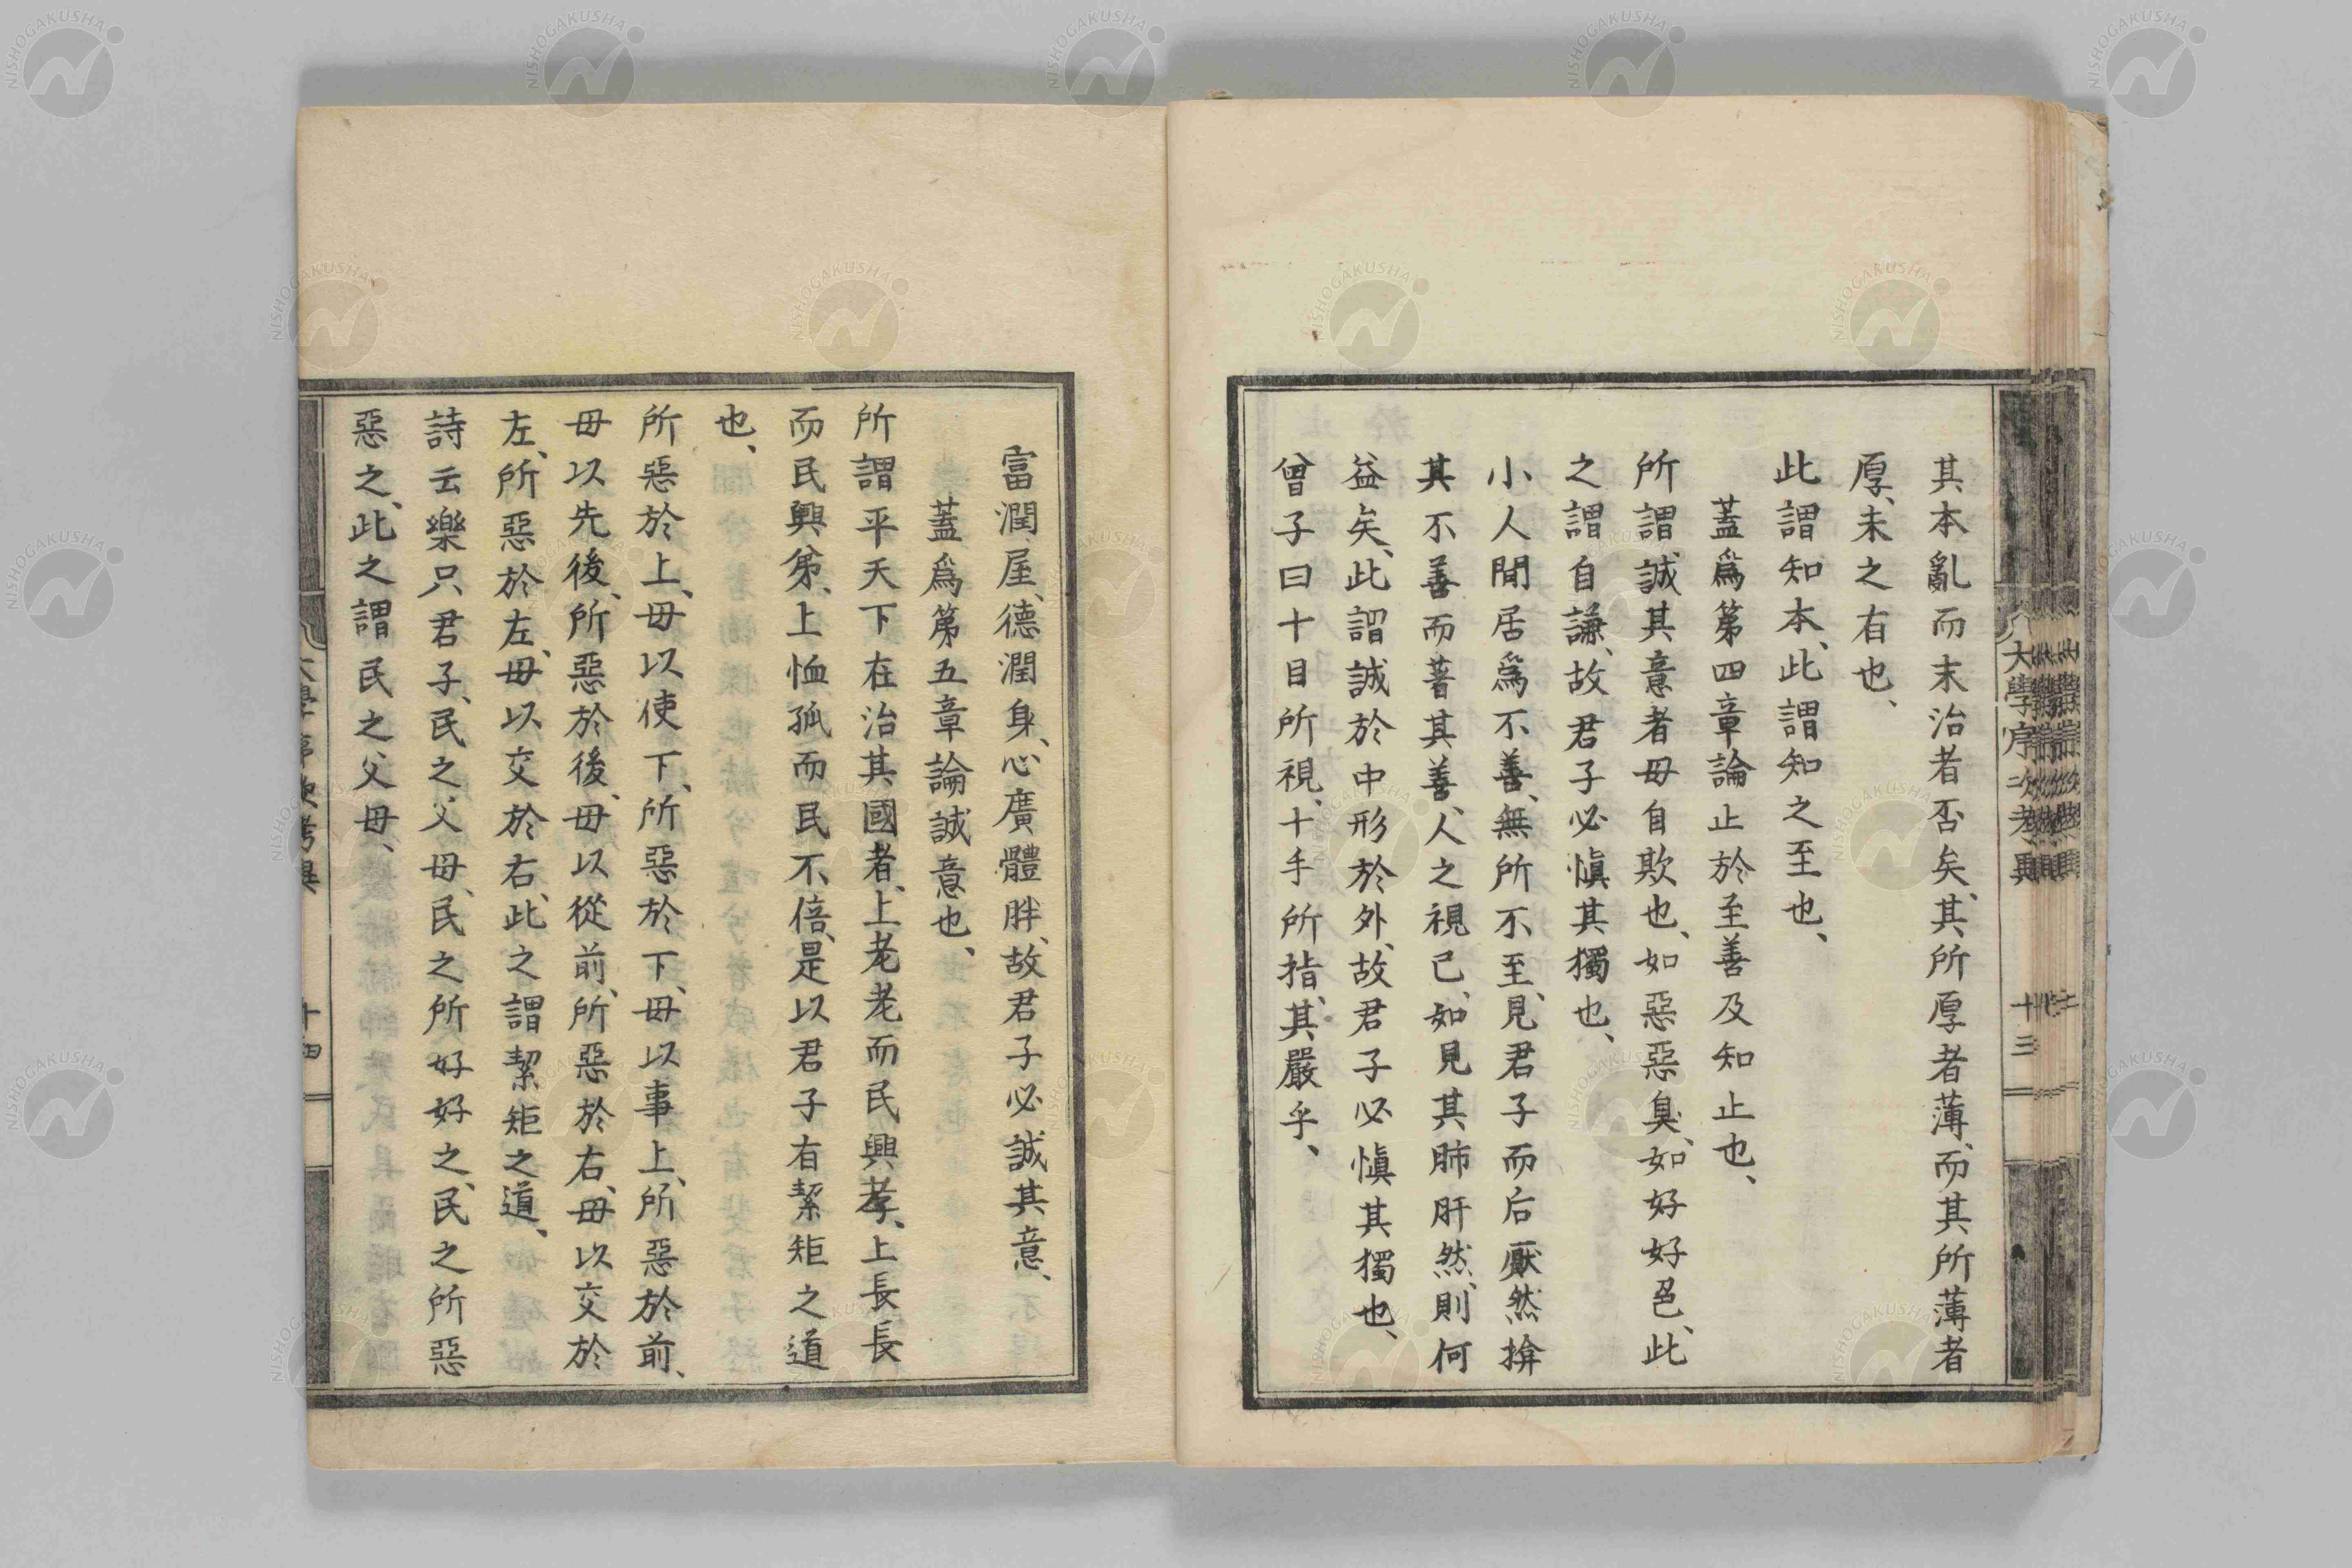 其本亂而末治者否矣、其所厚者薄、而其所薄者
厚、未之有也、
此謂知本、此謂知之至也、
蓋爲第四章論止於至善及知止也、
所謂誠其意者毋自欺也、如惡惡臭、如好好色、此
之謂自謙、故君子必愼其獨也、
小人閒居爲不善、無所不至、見君子而后厭然揜
其不善而著其善、人之視己、如見其肺肝然、則何
益矣、此謂誠於中形於外、故君子必愼其獨也、
曾子曰十目所視、十手所指、其嚴乎、
大學序次考異
十三
富潤屋、德潤身、心廣體胖、故君子必誠其意、
蓋爲第五章論誠意也、
所謂平天下在治其國者、上老老而民興孝、上長長
而民興弟、上恤孤而民不倍、是以君子有絜矩之道
也、
所惡於上、毋以使下、所惡於下、毋以事上、所惡於前、
毋以先後、所惡於後、毋以從前、所惡於右、毋以交於
左、所惡於左、毋以交於右、此之謂絜矩之道、
詩云樂只君子、民之父母、民之所好好之、民之所惡
惡之、此之謂民之父母、
大學序次考異
十四
NISHOGAKUSHA